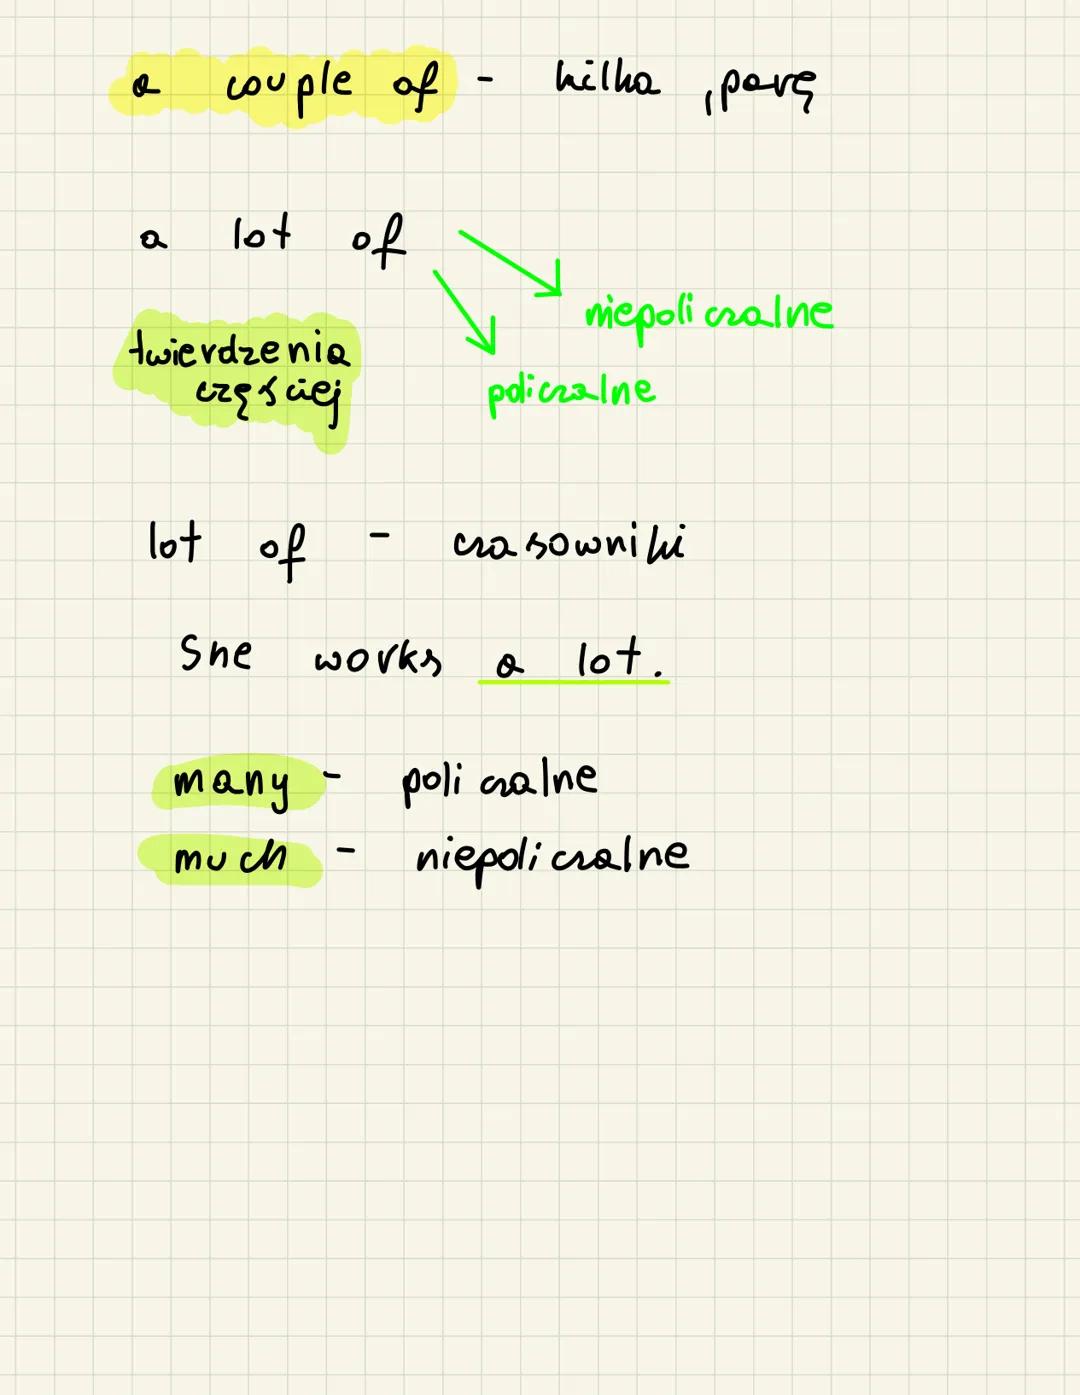 a couple of - kilka, parę
a lot of
niepoliczalne
twierdzenia
częściej
policzalne
lot of - czasowniki
She works a lot.
many - policzalne
much - niepoliczalne